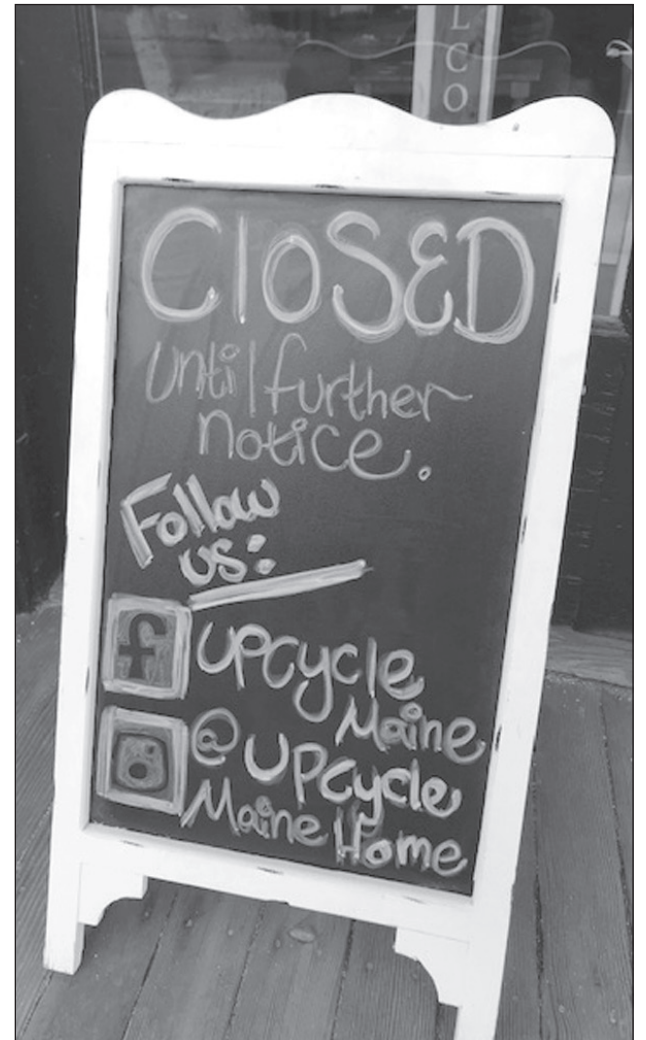 LCO
ClOSED
until further
notice.
Follow
us:
f UPcycle
Maine
@UPcycle
Maine Home